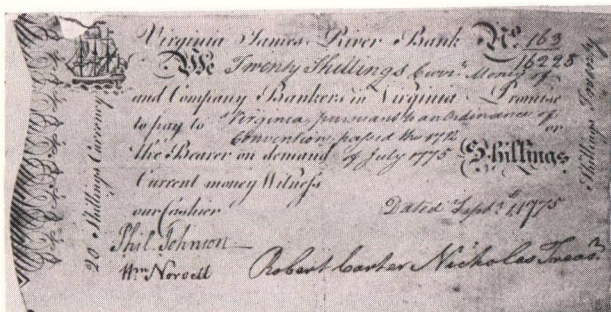 Virginia James River Bank No. 163
16228
We Twenty Shillings Curr.t Money of
and Company Bankers in Virginia Promise
to pay to Virginia pursuant to an Ordinance of
Convention, passed the 17th or
the Bearer on demand of July 1775 Shillings
Current money Witness
our Cashier Dated Septr. 1, 1775
Phil. Johnson
Wm Norvell Robert Carter Nicholas Treasr.
20 Shillings Currency
Shillings